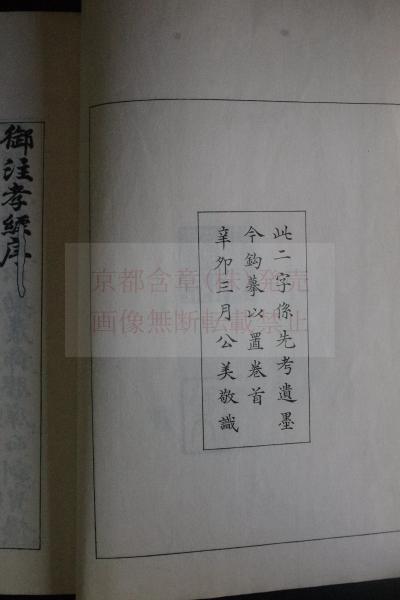 此二字係先考遺墨
今鈎摹以置卷首
辛卯三月公美敬識
御注孝經序
京都含章(株)発売
画像無断転載禁止